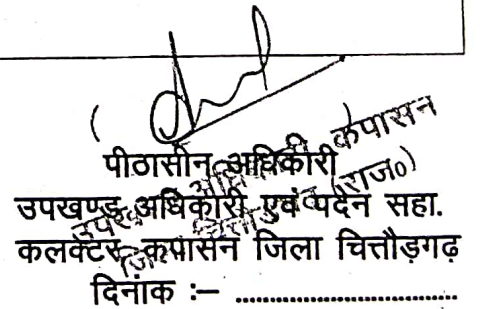 (                    )
पीठासीन अधिकारी
उपखण्ड अधिकारी एवं पदेन सहा.
कलक्टर, कपासन जिला चित्तौड़गढ़
दिनांक :– ................................
उपखण्ड अधिकारी कपासन
जिला चित्तौड़गढ़ (राज०)